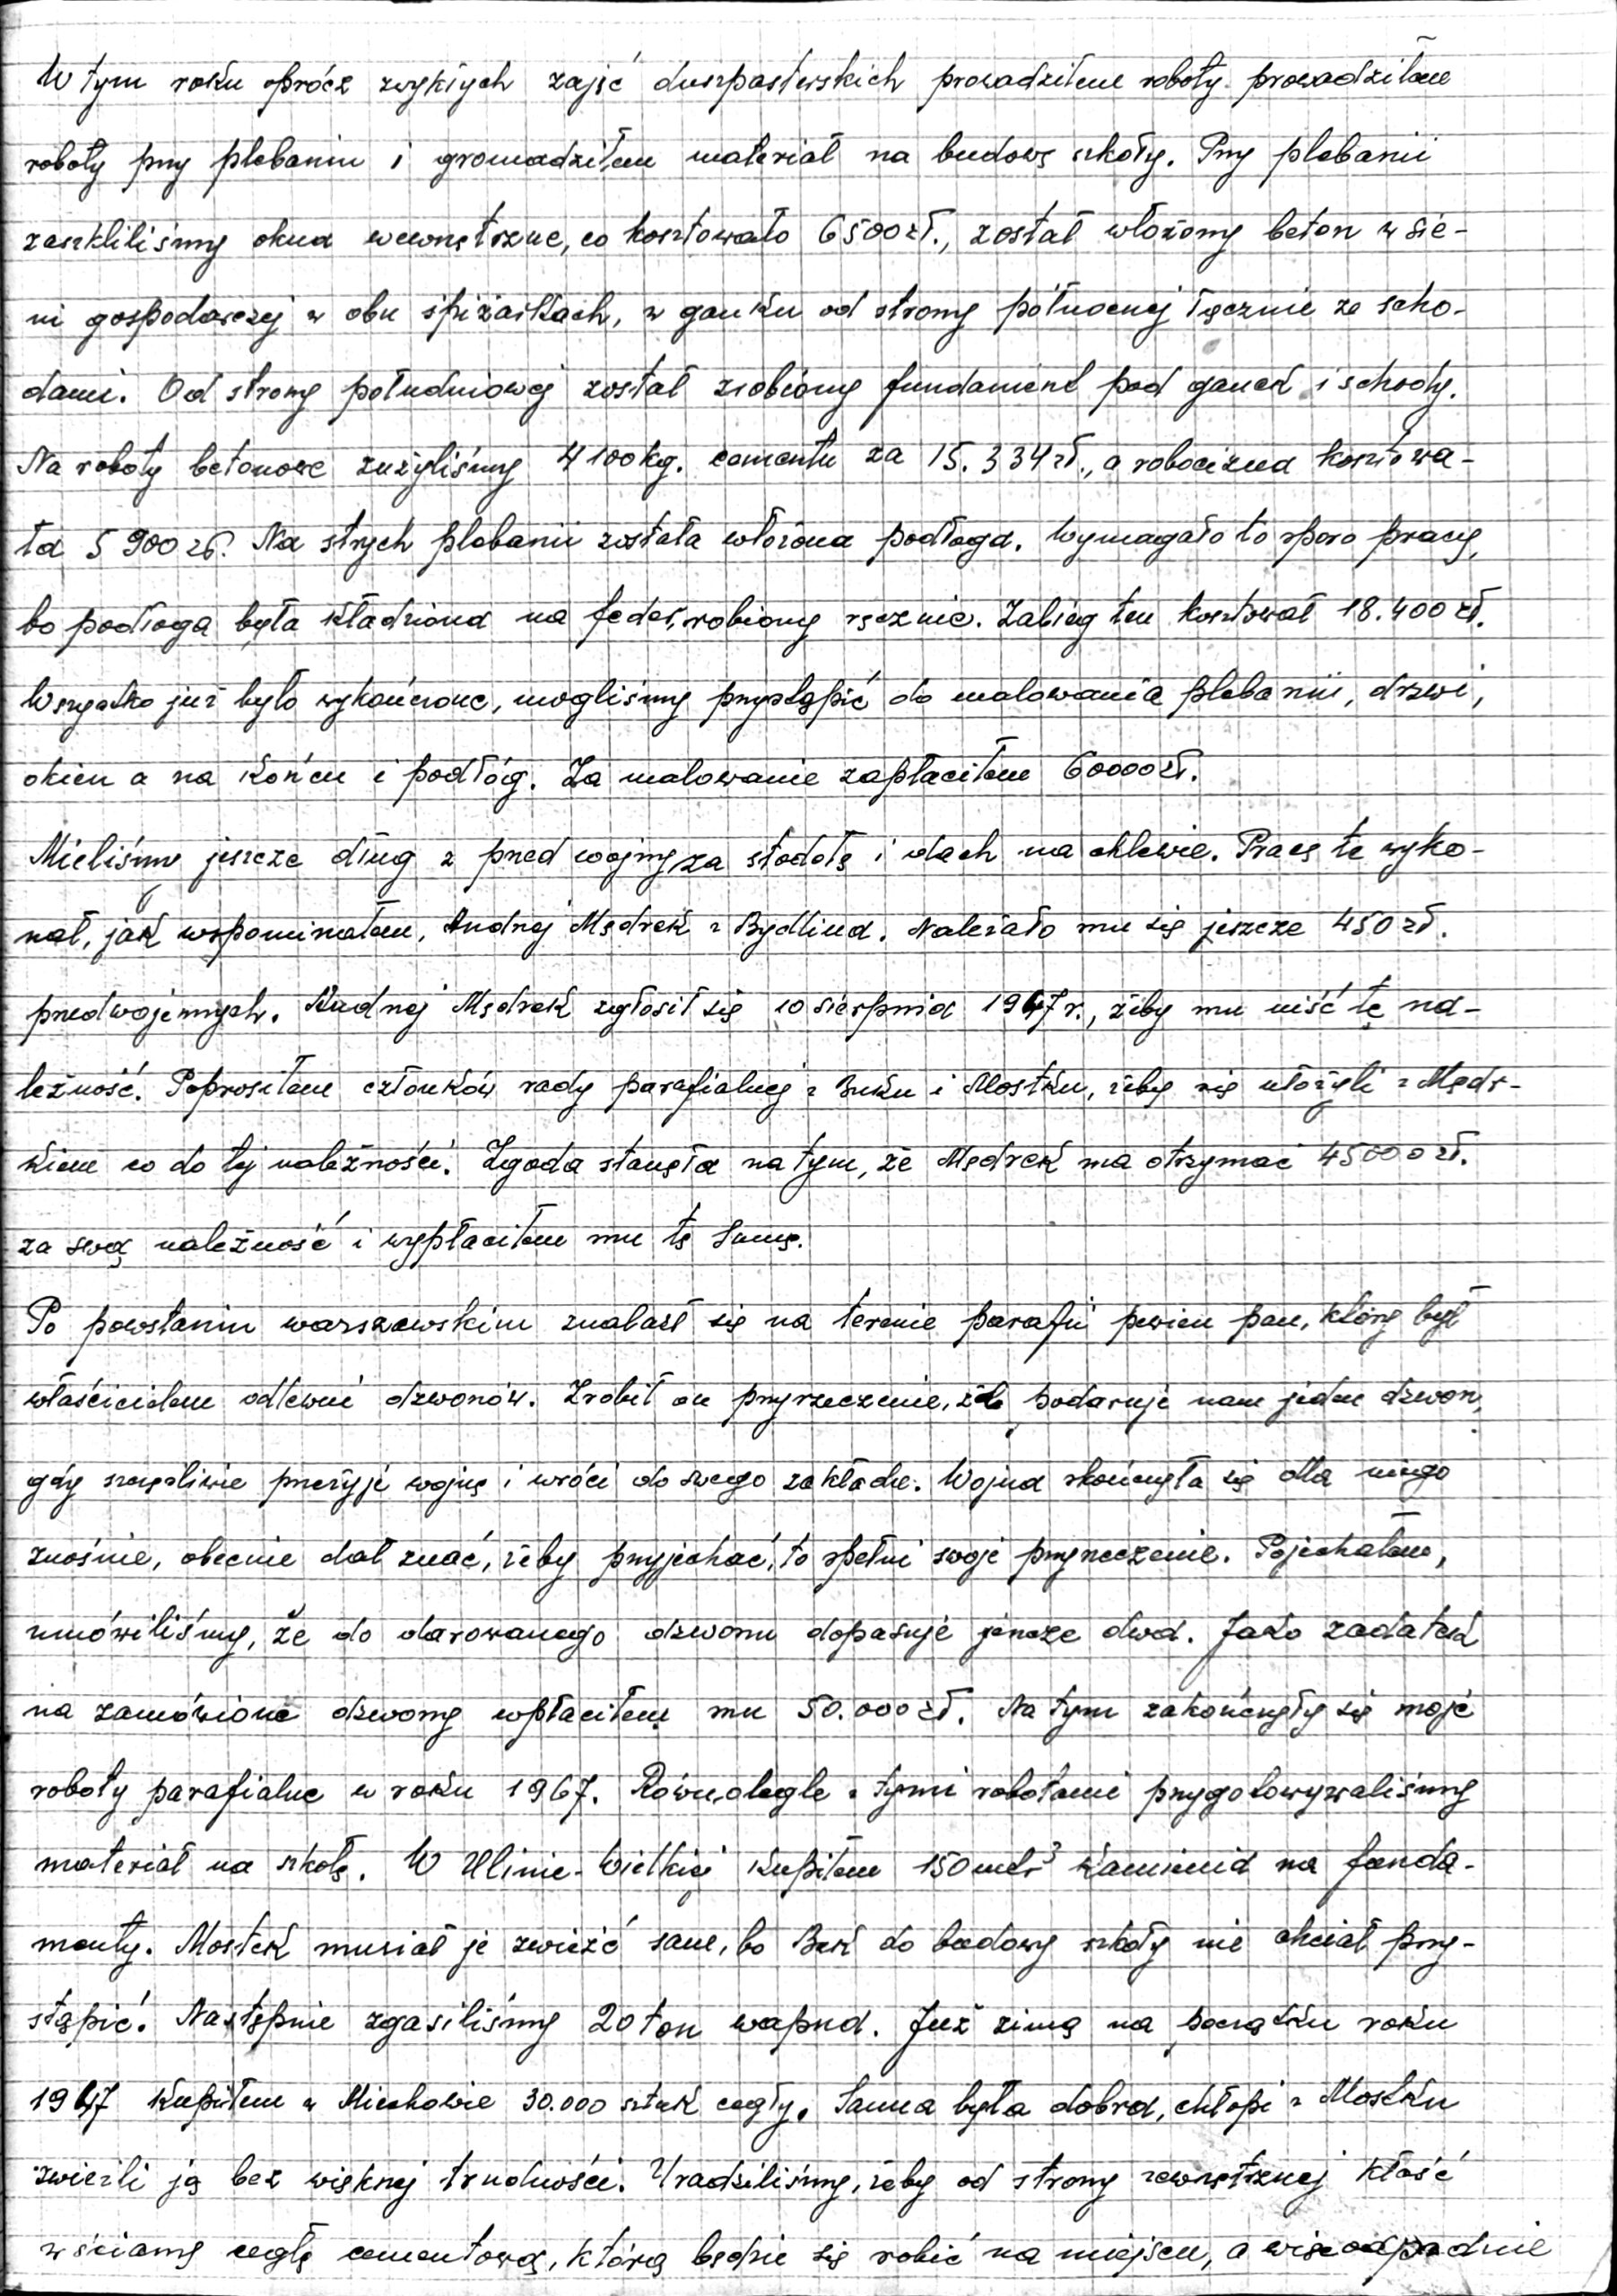 W tym roku oprócz zwykłych zajęć duszpasterskich prowadziłem roboty prowadziłem
roboty przy plebanii i gromadziłem materiał na budowę szkoły. Przy plebanii
zaszkliliśmy okna wewnętrzne, co kosztowało 6500 zł., został włożony beton w sie-
ni gospodarczej w obu spiżarkach, w ganku od strony północnej łącznie ze scho-
dami. Od strony południowej został zrobiony fundament pod ganek i schody.
Na roboty betonowe zużyliśmy 4100 kg. cementu za 15.334 zł., a robocizna kosztowa-
ła 5 900 zł. Na strych plebanii została włożona podłoga. Wymagało to sporo pracy,
bo podłoga była kładziona na feder, robiony ręcznie. Zabieg ten kosztował 18.400 zł.
Wszystko już było wykończone, mogliśmy przystąpić do malowania plebanii, drzwi,
okien a na końcu i podłóg. Za malowanie zapłaciłem 60000 zł.
Mieliśmy jeszcze dług z przed wojny za stodołę i dach na chlewie. Pracę tę wyko-
nał, jak wspominałem, Andrzej Mędrek z Bydlina. Należało mu się jeszcze 450 zł.
przedwojennych. Andrzej Mędrek zgłosił się 10 sierpnia 1947 r., żeby mu uiść tę na-
leżność. Poprosiłem członków rady parafialnej z Buku i Mostku, żeby się ułożyli z Mędr-
kiem co do tej należności. Zgoda stanęła na tym, że Mędrek ma otrzymać 45000 zł.
za swą należność i wypłaciłem mu tę sumę.
Po powstaniu warszawskim znalazł się na terenie parafii pewien pan, który był
właścicielem odlewni dzwonów. Zrobił on przyrzeczenie, że podaruje nam jeden dzwon,
gdy szczęśliwie przeżyje wojnę i wróci do swego zakładu. Wojna skończyła się dla niego
znośnie, obecnie dał znać, żeby przyjechać, to spełni swoje przyrzeczenie. Pojechałem,
umówiliśmy, że do darowanego dzwonu dopasuje jeszcze dwa. Jako zadatek
na zamówione dzwony wpłaciłem mu 50.000 zł. Na tym zakończyły się moje
roboty parafialne w roku 1967. Równolegle z tymi robotami przygotowywaliśmy
materiał na szkołę. W Ulinie-Wielkiej kupiłem 150 mtr³ kamienia na funda-
menty. Mostek musiał je zwieźć sam, bo Buk do budowy szkoły nie chciał przy-
stąpić. Następnie zgasiliśmy 20 ton wapna. Już zimą na początku roku
1947 kupiłem w Miechowie 30.000 sztuk cegły. Sanna była dobra, chłopi z Mostku
zwieźli ją bez większej trudności. Uradziliśmy, żeby od strony zewnętrznej kłaść
w ściany cegłę cementową, którą będzie się robić na miejscu, a więc odpadnie